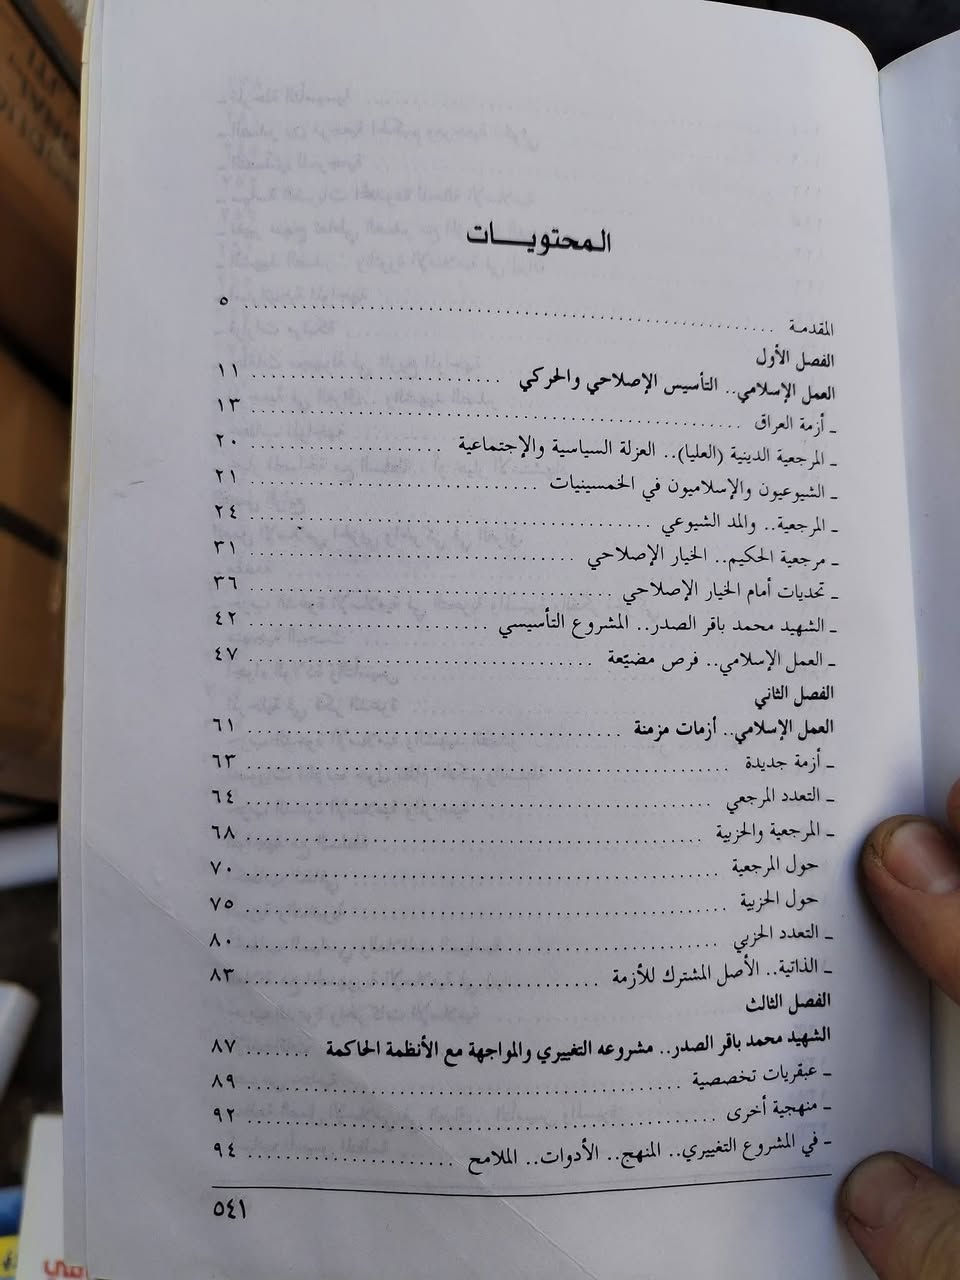 المحتويـــات
المقدمـة ............ ٥
الفصل الأول
العمل الإسلامي.. التأسيس الإصلاحي والحركي ............ ١١
ـ أزمة العراق ............ ١٣
ـ المرجعية الدينية (العليا).. العزلة السياسية والإجتماعية ............ ٢٠
ـ الشيوعيون والإسلاميون في الخمسينيات ............ ٢١
ـ المرجعية.. والمد الشيوعي ............ ٢٤
ـ مرجعية الحكيم.. الخيار الإصلاحي ............ ٣١
ـ تحديات أمام الخيار الإصلاحي ............ ٣٦
ـ الشهيد محمد باقر الصدر.. المشروع التأسيسي ............ ٤٢
ـ العمل الإسلامي.. فرص مضيّعة ............ ٤٧
الفصل الثاني
العمل الإسلامي.. أزمات مزمنة ............ ٦١
ـ أزمة جديدة ............ ٦٣
ـ التعدد المرجعي ............ ٦٤
ـ المرجعية والحزبية ............ ٦٨
حول المرجعية ............ ٧٠
حول الحزبية ............ ٧٥
ـ التعدد الحزبي ............ ٨٠
ـ الذاتية.. الأصل المشترك للأزمة ............ ٨٣
الفصل الثالث
الشهيد محمد باقر الصدر.. مشروعه التغييري والمواجهة مع الأنظمة الحاكمة ....... ٨٧
ـ عبقريات تخصصية ............ ٨٩
ـ منهجية أخرى ............ ٩٢
ـ في المشروع التغييري.. المنهج.. الأدوات.. الملامح ............ ٩٤
٥٤١